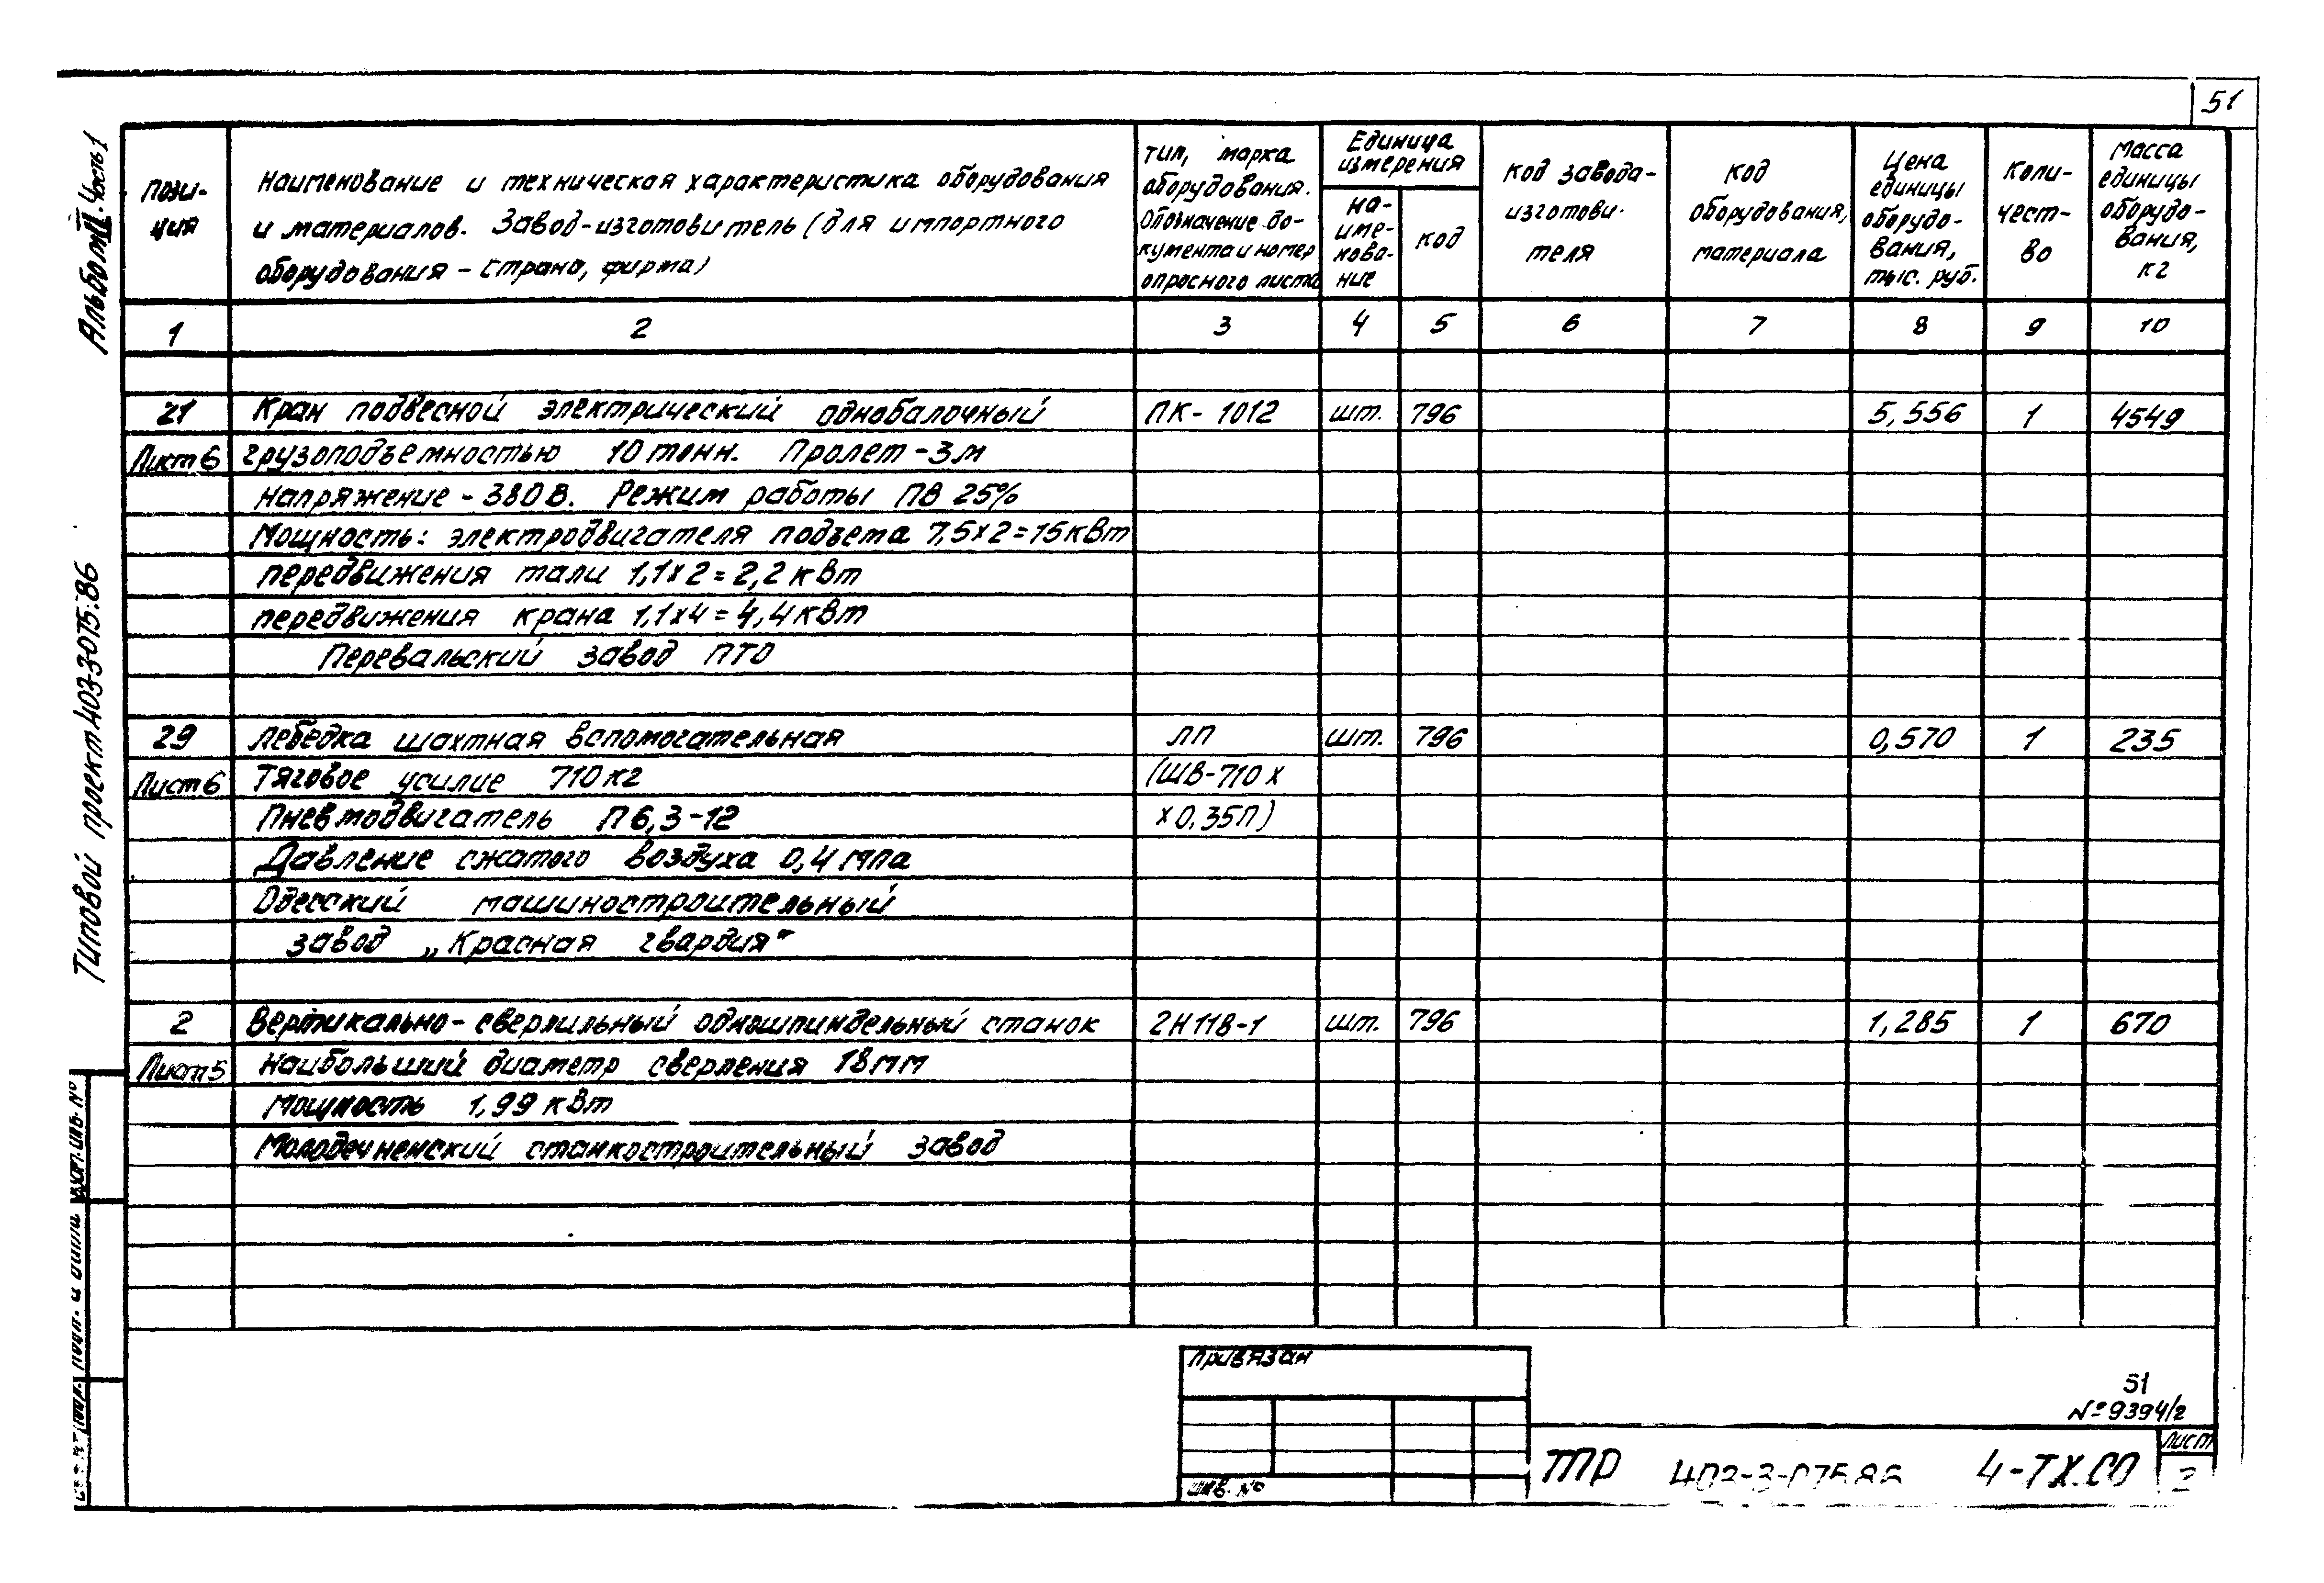 51
Альбом VI. Часть 1
Типовой проект 403-3-075.86
Пози-
ция
Наименование и техническая характеристика оборудования
и материалов. Завод-изготовитель (для импортного
оборудования - страна, фирма)
тип, марка
оборудования.
Обозначение до-
кумента и номер
опросного листа
Единица
измерения
на-
име-
нова-
ние
код
код завода-
изготови-
теля
код
оборудования,
материала
Цена
единицы
оборудо-
вания,
тыс. руб.
Коли-
чест-
во
Масса
единицы
оборудо-
вания,
кг
1 2 3 4 5 6 7 8 9 10
21 Кран подвесной электрический однобалочный ПК-1012 шт. 796 5,556 1 4549
Лист 6 грузоподъемностью 10 тонн. Пролет-3м
напряжение - 380В. Режим работы ПВ 25%
Мощность: электродвигателя подъема 7,5х2=15кВт
передвижения тали 1,1х2=2,2кВт
передвижения крана 1,1х4=4,4кВт
Перевальский завод ПТО
29 Лебедка шахтная вспомогательная ЛП шт. 796 0,570 1 235
Лист 6 Тяговое усилие 710кг (ШВ-710х
Пневмодвигатель П6,3-12 х0.35П)
Давление сжатого воздуха 0,4мпа
Одесский машиностроительный
завод „Красная гвардия"
2 Вертикально-сверлильный одношпиндельный станок 2Н118-1 шт. 796 1,285 1 670
Лист 5 Наибольший диаметр сверления 18мм
Мощность 1,99кВт
Молодечненский станкостроительный завод
Взам. инв. №
подп. и дата
Привязан
инв. №
51
№9394/2
ТПР 403-3-075.86 4-ТХ.СО
Лист
2